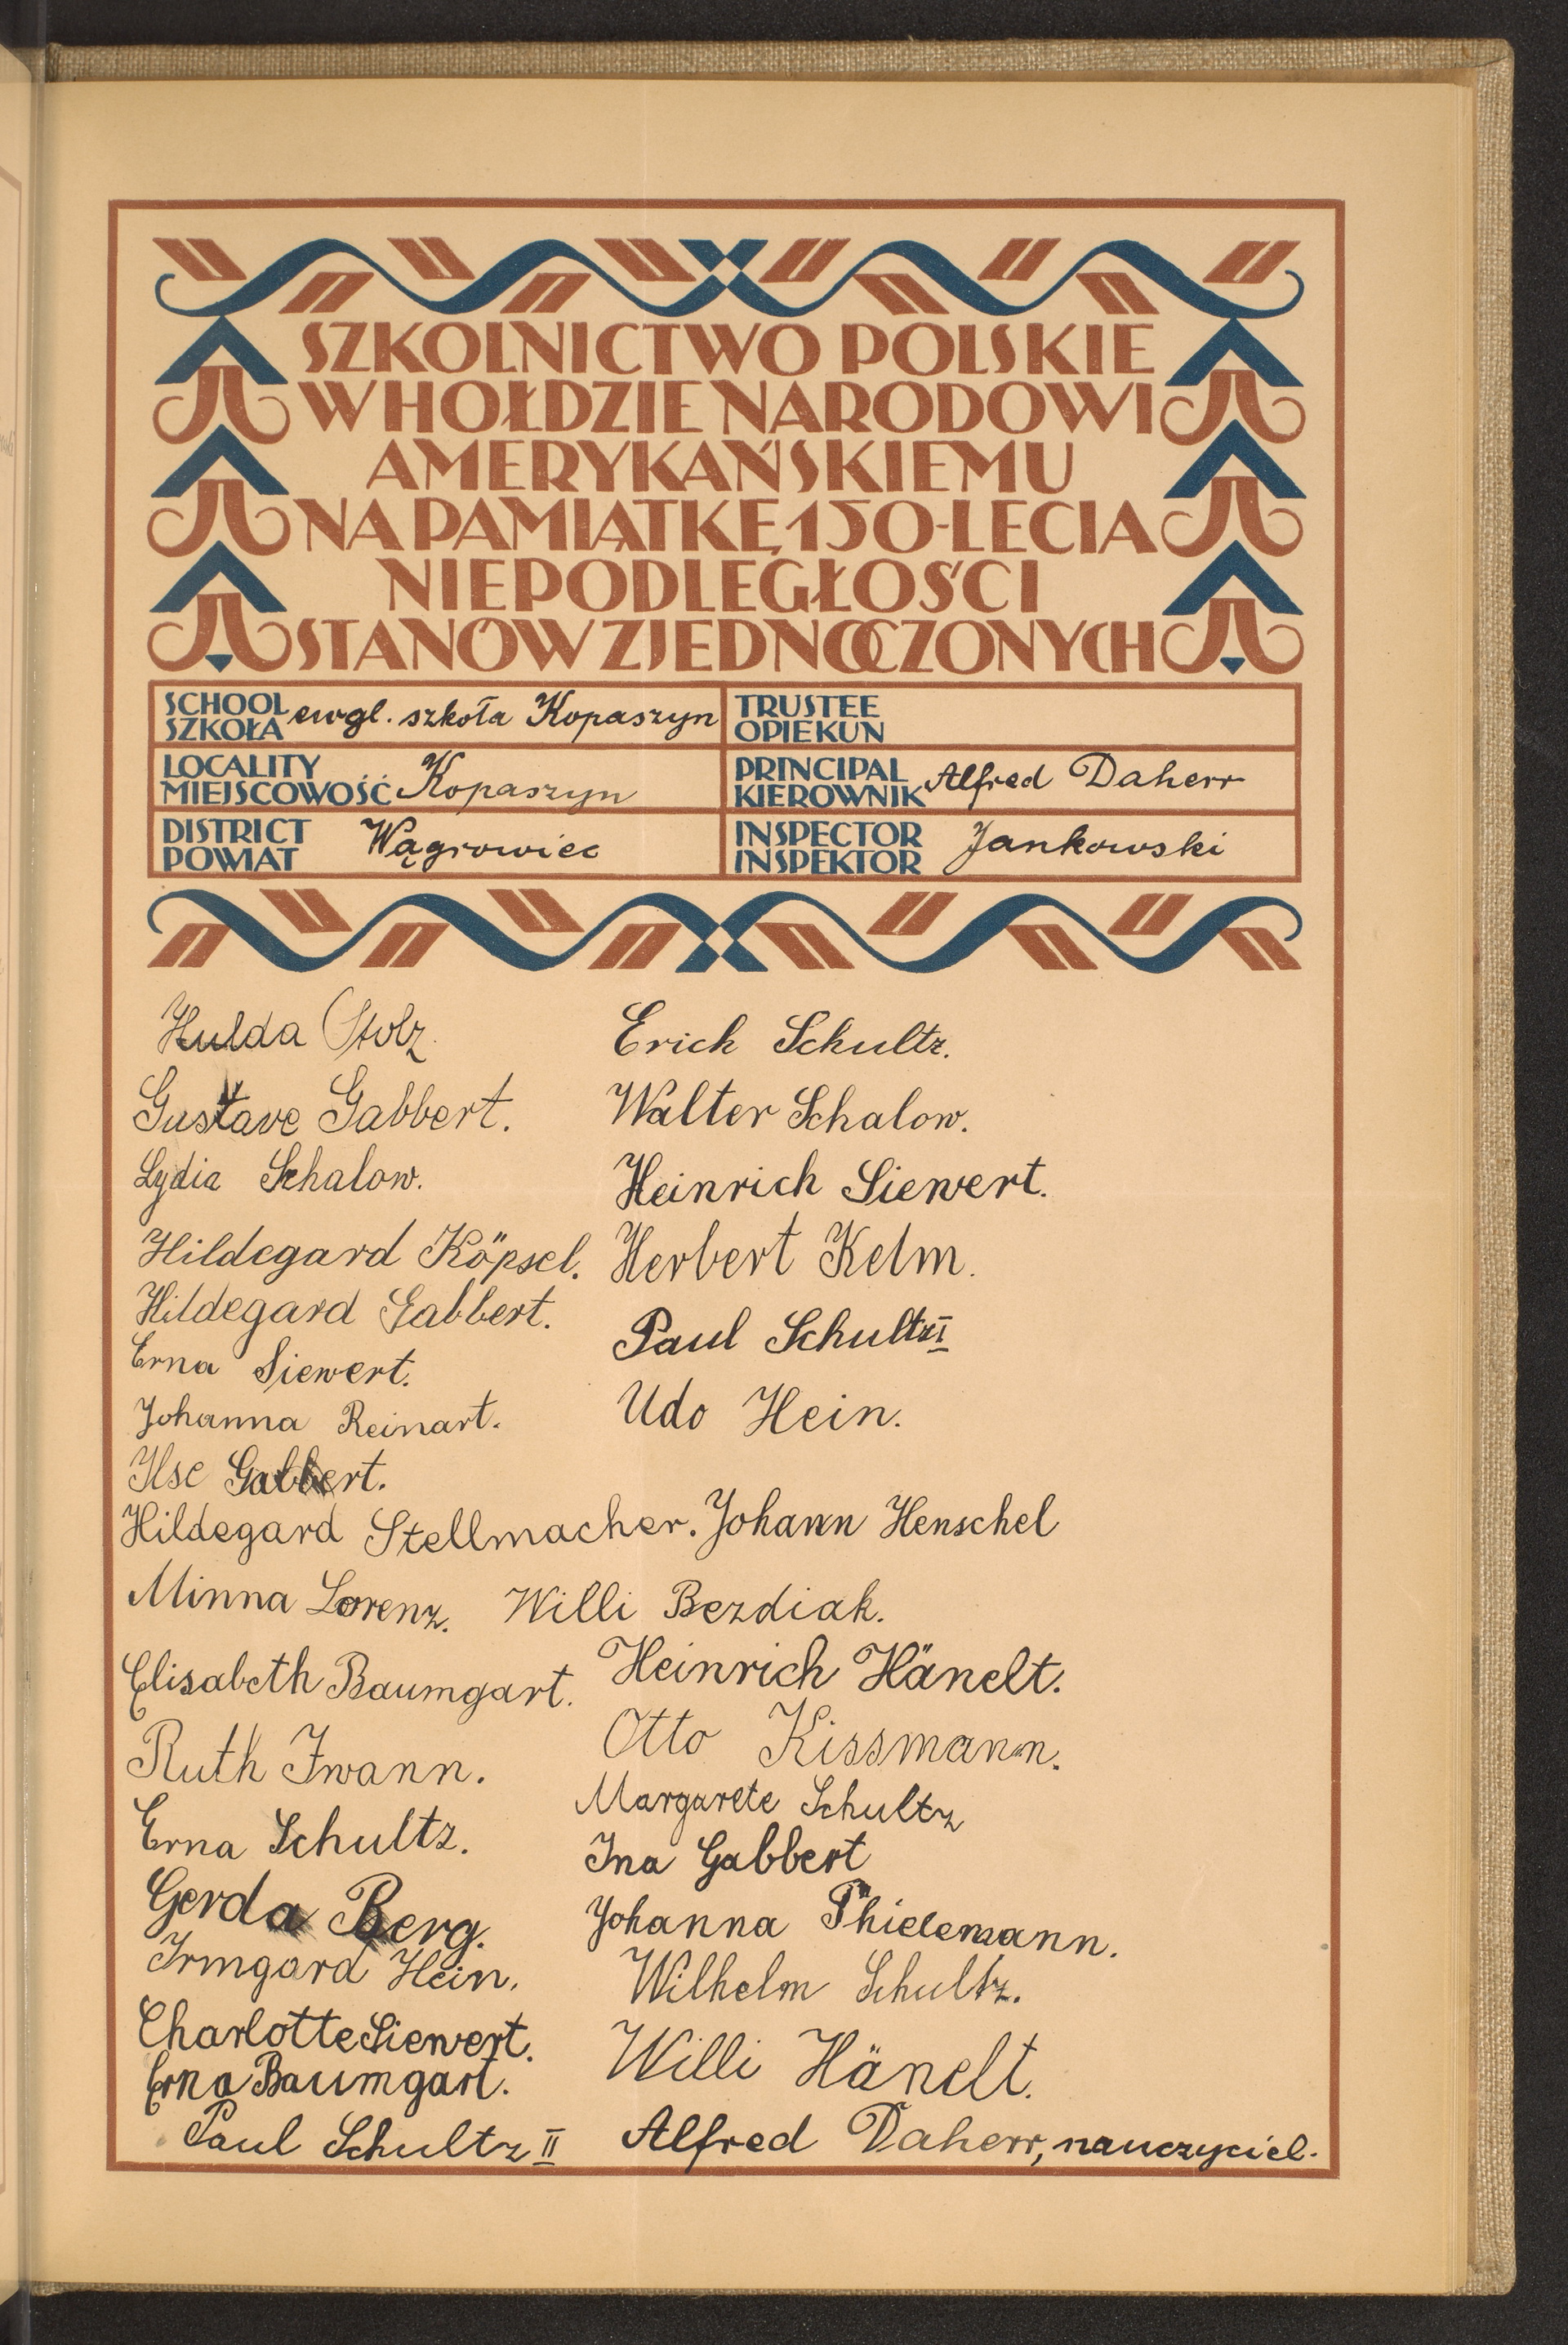 SZKOLNICTWO POLSKIE
W HOŁDZIE NARODOWI
AMERYKAŃSKIEMU
NA PAMIĄTKĘ 150-LECIA
NIEPODLEGŁOŚCI
STANÓW ZJEDNOCZONYCH
SCHOOL
SZKOŁA ewgl. szkoła Kopaszyn
TRUSTEE
OPIEKUN
LOCALITY
MIEJSCOWOŚĆ Kopaszyn
PRINCIPAL
KIEROWNIK Alfred Daherr
DISTRICT
POWIAT Wągrowiec
INSPECTOR
INSPEKTOR Jankowski
Hulda Stolz.
Gustave Gabbert.
Lydia Schalow.
Hildegard Köpsel.
Hildegard Gabbert.
Erna Siewert.
Johanna Reinart.
Ilse Gabbert.
Hildegard Stellmacher.
Minna Lorenz.
Elisabeth Baumgart.
Ruth Iwann.
Erna Schultz.
Gerda Berg.
Irmgard Hein.
Charlotte Siewert.
Erna Baumgart.
Paul Schultz II
Erich Schultz.
Walter Schalow.
Heinrich Siewert.
Herbert Kelm.
Paul Schultz I
Udo Hein.
Johann Henschel
Willi Bezdiak.
Heinrich Hänelt.
Otto Kissmann.
Margarete Schultz
Ina Gabbert
Johanna Thielemann.
Wilhelm Schultz.
Willi Hänelt.
Alfred Daherr, nauczyciel.